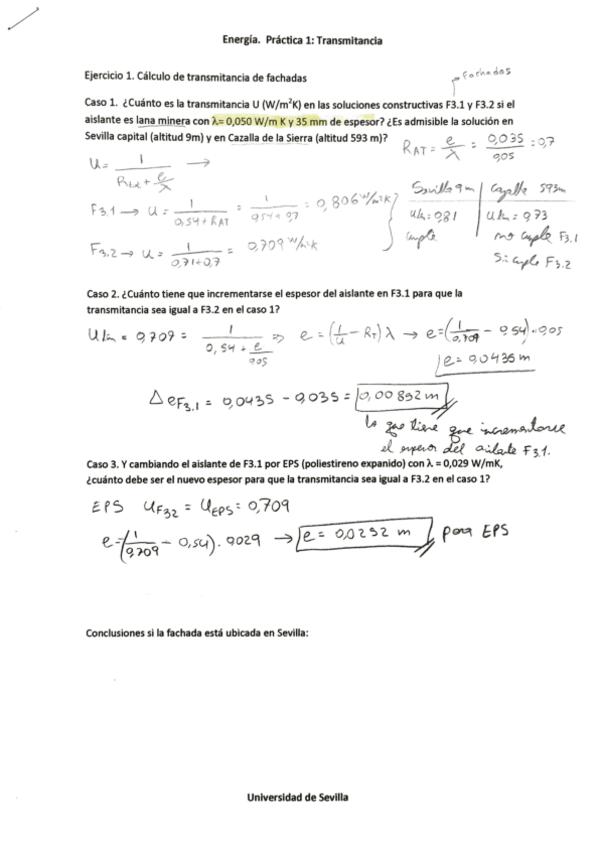 Energía. Práctica 1: Transmitancia
Ejercicio 1. Cálculo de transmitancia de fachadas
Fachadas
Caso 1. ¿Cuánto es la transmitancia U (W/m²K) en las soluciones constructivas F3.1 y F3.2 si el
aislante es lana minera con λ= 0,050 W/m K y 35 mm de espesor? ¿Es admisible la solución en
Sevilla capital (altitud 9m) y en Cazalla de la Sierra (altitud 593 m)?
R_AT = e/λ = 0,035/0,05 = 0,7
U = 1/(R_tot + e/λ) →
F3.1 → U = 1/(0,54+R_AT) = 1/(0,54+0,7) = 0,806 W/m²K
F3.2 → U = 1/(0,71+0,7) = 0,709 W/m²K
Sevilla 9m | Cazalla 593m
Ulim = 0,81 | Ulim = 0,73
cumple | no cumple F3.1
Si cumple F3.2
Caso 2. ¿Cuánto tiene que incrementarse el espesor del aislante en F3.1 para que la
transmitancia sea igual a F3.2 en el caso 1?
Ulim = 0,709 = 1/(0,54 + e/0,05) ⇒ e = (1/U - R_T) λ → e = (1/0,709 - 0,54)·0,05
e = 0,0435 m
Δe F3.1 = 0,0435 - 0,035 = 0,00852 m
lo que tiene que incrementarse
el espesor del aislante F3.1.
Caso 3. Y cambiando el aislante de F3.1 por EPS (poliestireno expanido) con λ = 0,029 W/mK,
¿cuánto debe ser el nuevo espesor para que la transmitancia sea igual a F3.2 en el caso 1?
EPS U_F32 = U_EPS = 0,709
e = (1/0,709 - 0,54) · 0,029 → e = 0,0252 m para EPS
Conclusiones si la fachada está ubicada en Sevilla:
Universidad de Sevilla